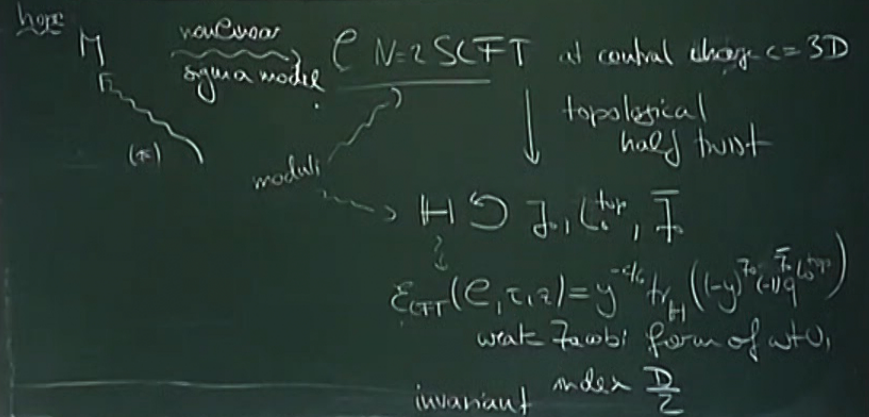 hope
M nonlinear sigma model C N=2 SCFT at central charge c = 3D
topological
half twist
(*)
moduli
H ↺ J₀, L₀^top, J̄₀
ℰ_CFT(C, τ, z) = y^{-c/6} tr_H((-y)^{J₀} (-1)^{J̄₀} q^{L₀^top})
weak Jacobi form of wt 0,
invariant index D/2